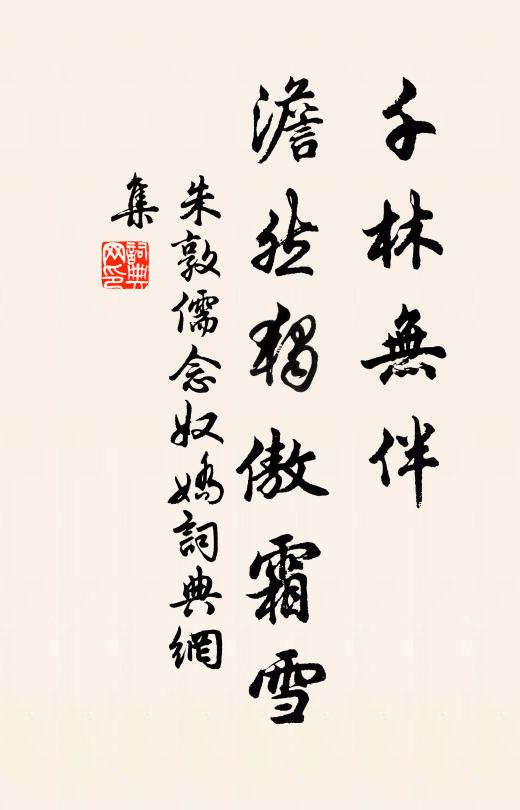 千林無伴
澹然獨傲霜雪
朱敦儒念奴嬌詞典網
集
詞典
网印